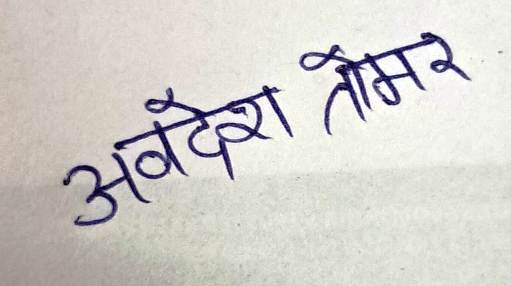 अवदेश तोमर